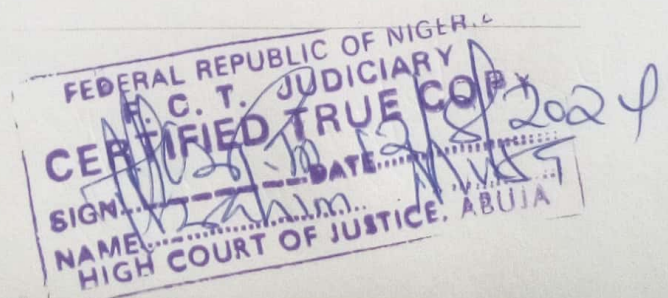 FEDERAL REPUBLIC OF NIGER
F. C. T. JUDICIARY
CERTIFIED TRUE COPY
SIGN DATE 12/8/2024
NAME Ibrahim
HIGH COURT OF JUSTICE, ABUJA